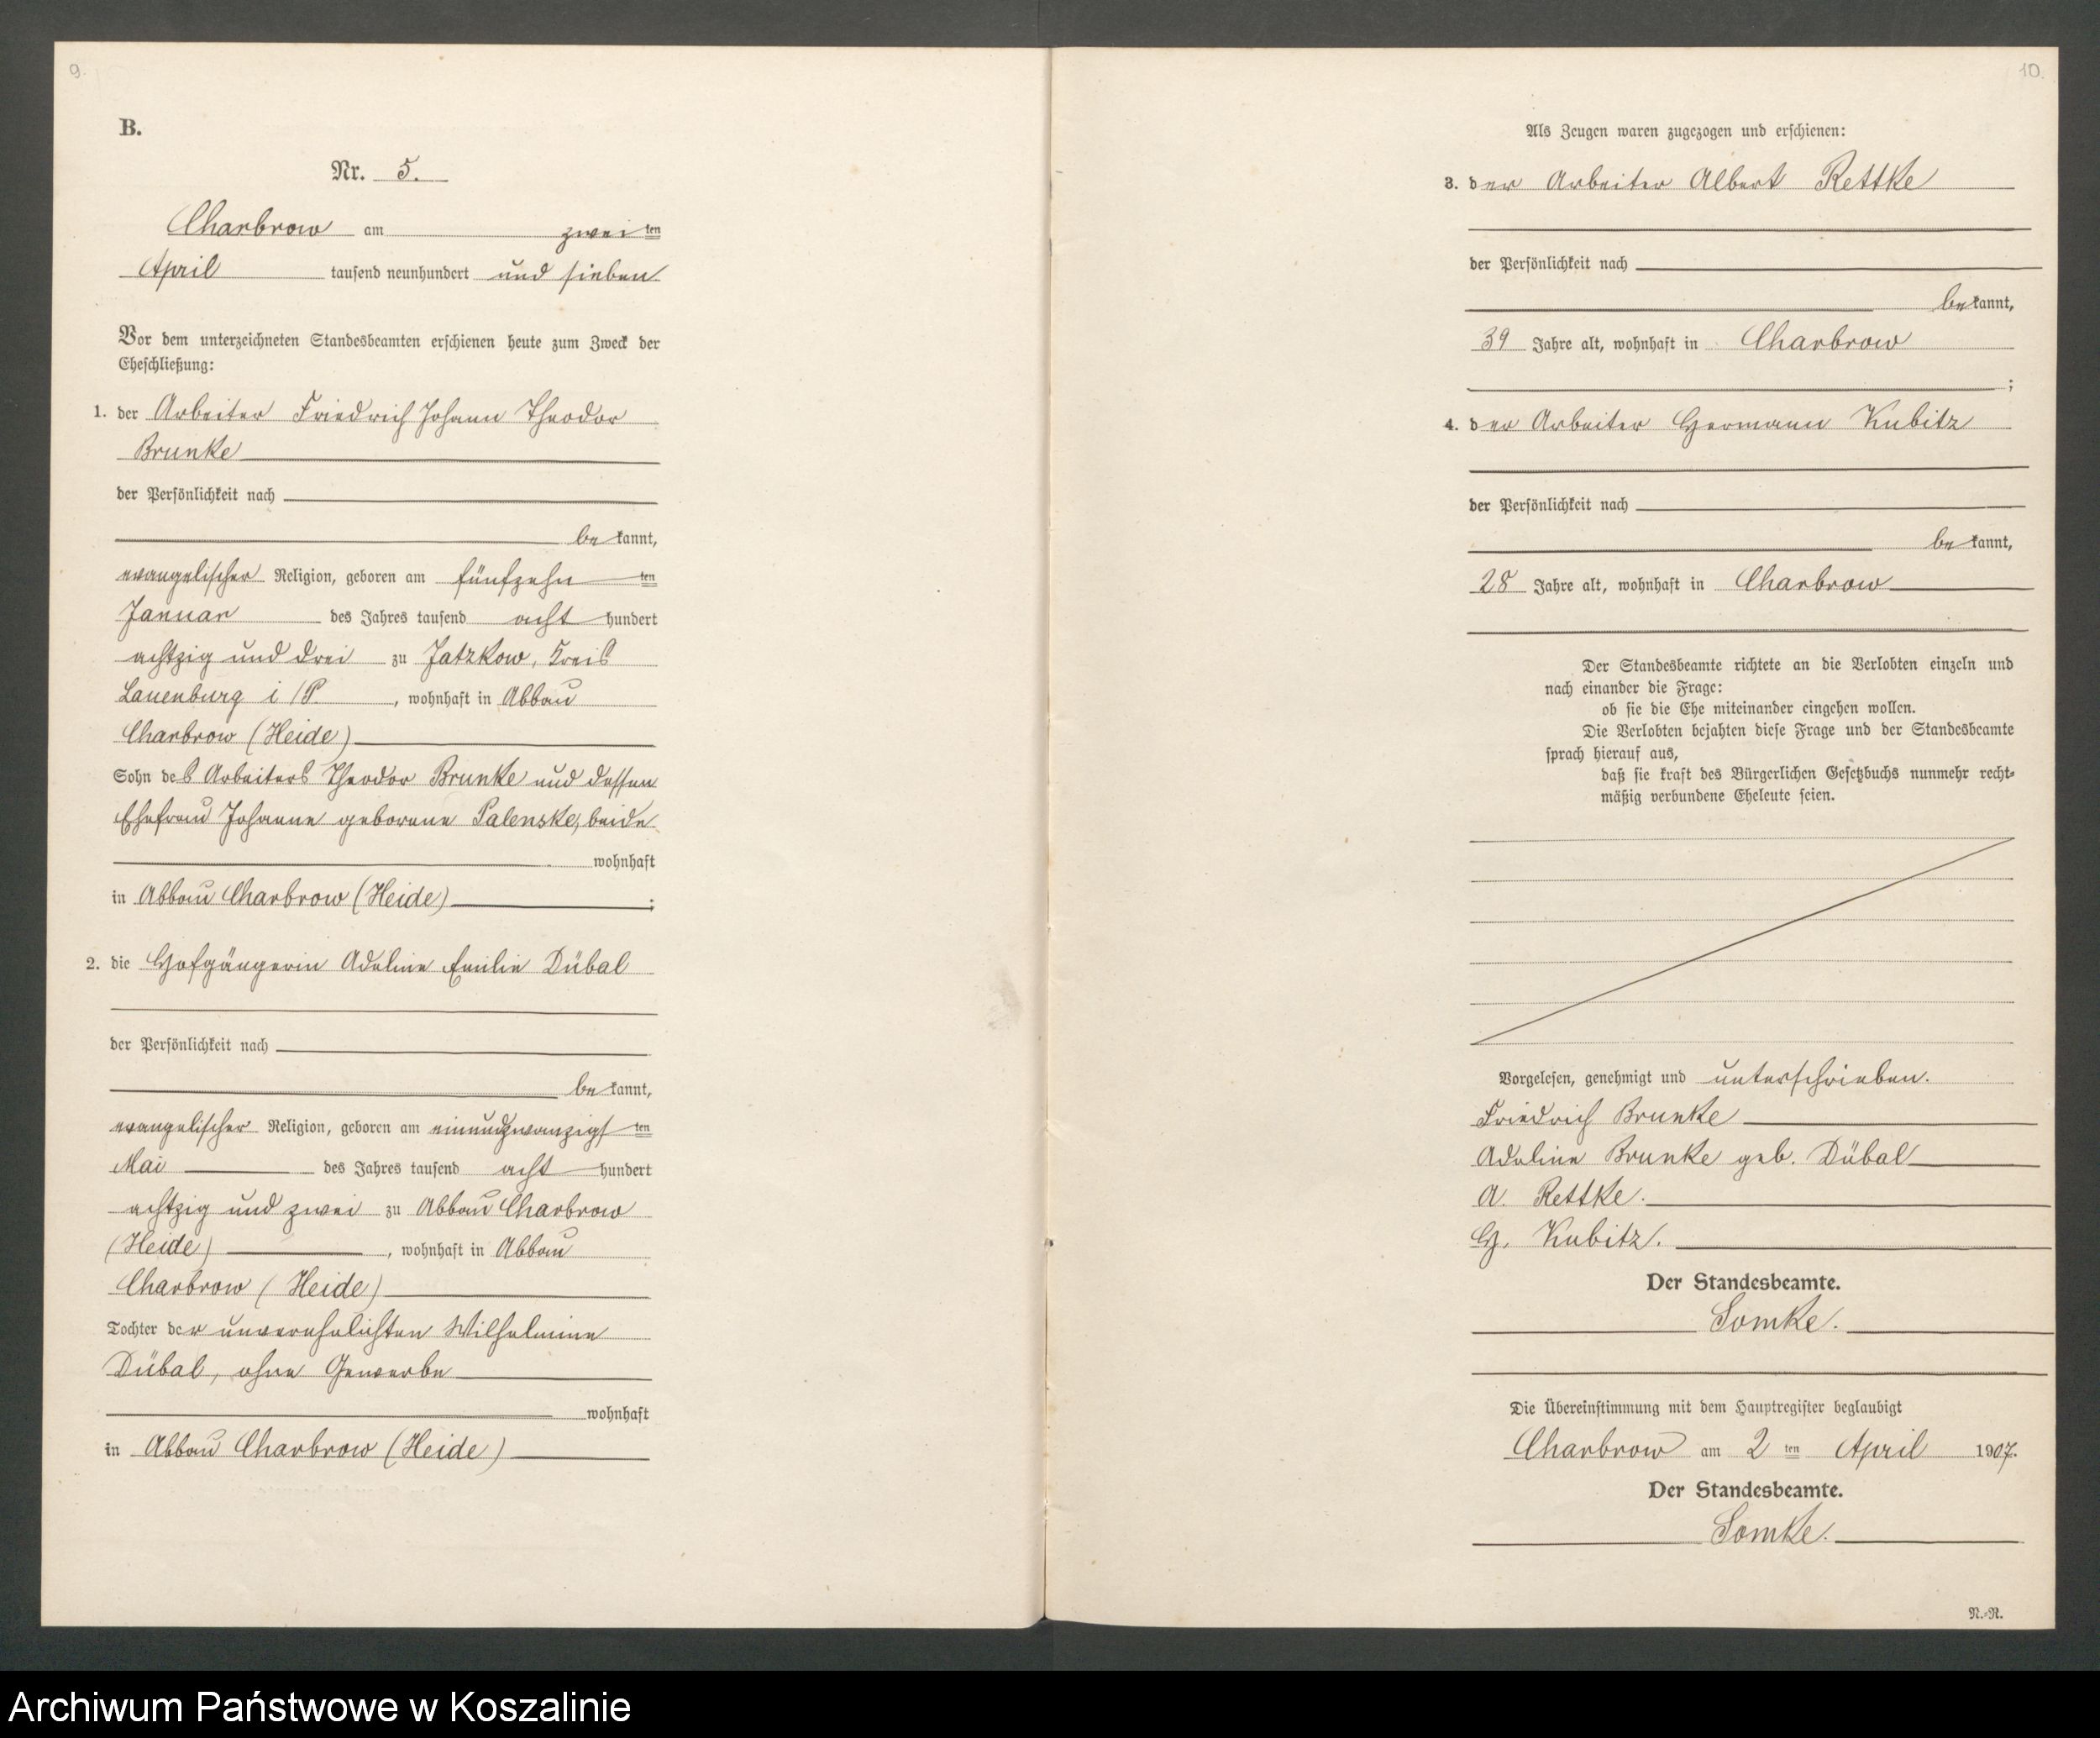 9.
B.
Nr. 5.
Charbrow am zweiten
April tausend neunhundert und sieben
Vor dem unterzeichneten Standesbeamten erschienen heute zum Zweck der
Eheschließung:
1. der Arbeiter Friedrich Johann Theodor
Brunke
der Persönlichkeit nach
bekannt,
evangelischer Religion, geboren am fünfzehnten
Januar des Jahres tausend acht hundert
achtzig und drei zu Jatzkow, Kreis
Lauenburg i/P., wohnhaft in Abbau
Charbrow (Heide)
Sohn des Arbeiters Theodor Brunke und dessen
Ehefrau Johanne geborene Palenske, beide
wohnhaft
in Abbau Charbrow (Heide);
2. die Hofgängerin Adeline Emilie Dübal
der Persönlichkeit nach
bekannt,
evangelischer Religion, geboren am einundzwanzigsten
Mai des Jahres tausend acht hundert
achtzig und zwei zu Abbau Charbrow
(Heide), wohnhaft in Abbau
Charbrow (Heide)
Tochter der unverehelichten Wilhelmine
Dübal, ohne Gewerbe
wohnhaft
in Abbau Charbrow (Heide)
10.
Als Zeugen waren zugezogen und erschienen:
3. der Arbeiter Albert Rettke
der Persönlichkeit nach
bekannt,
39 Jahre alt, wohnhaft in Charbrow
;
4. der Arbeiter Hermann Kubitz
der Persönlichkeit nach
bekannt,
28 Jahre alt, wohnhaft in Charbrow
Der Standesbeamte richtete an die Verlobten einzeln und
nach einander die Frage:
ob sie die Ehe miteinander eingehen wollen.
Die Verlobten bejahten diese Frage und der Standesbeamte
sprach hierauf aus,
daß sie kraft des Bürgerlichen Gesetzbuchs nunmehr recht-
mäßig verbundene Eheleute seien.
Vorgelesen, genehmigt und unterschrieben.
Friedrich Brunke
Adeline Brunke geb. Dübal
A. Rettke.
H. Kubitz.
Der Standesbeamte.
Somke.
Die Übereinstimmung mit dem Hauptregister beglaubigt
Charbrow am 2ten April 1907.
Der Standesbeamte.
Somke.
N.-N.
Archiwum Państwowe w Koszalinie